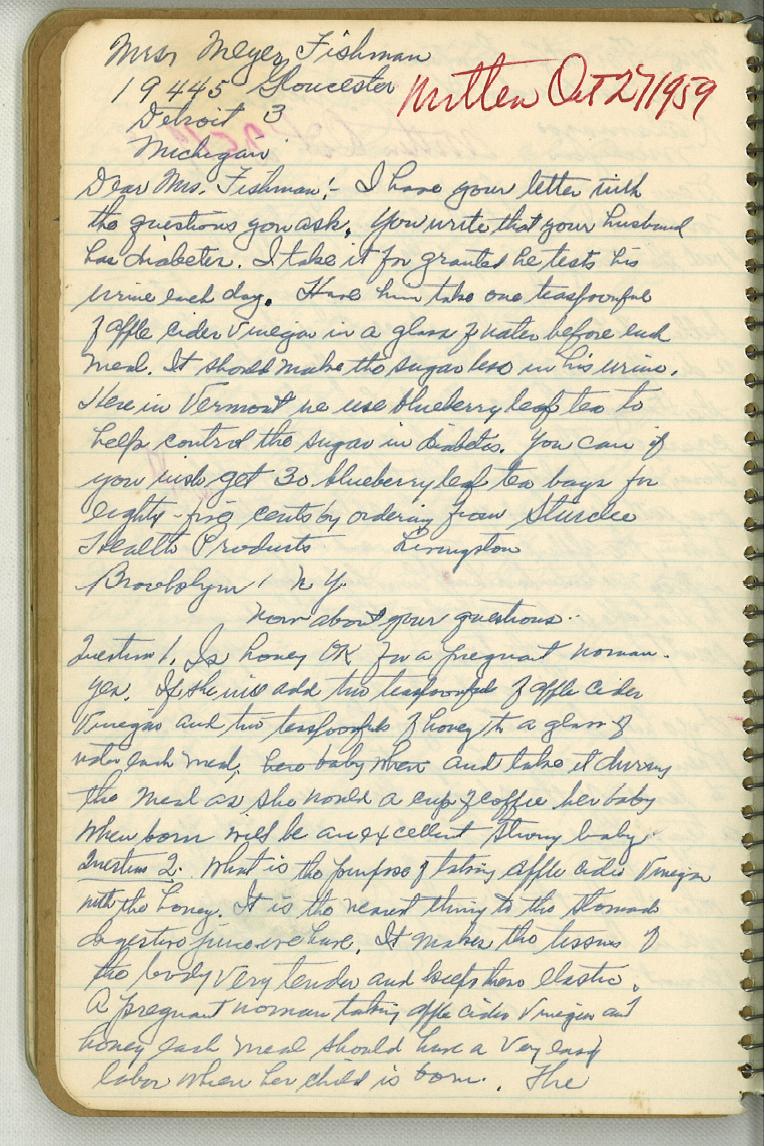 Mrs. Meyer Fishman
19445 Gloucester
Written Oct 27/1959
Detroit 3
Michigan
Dear Mrs. Fishman:- I have your letter with
the questions you ask. You write that your husband
has diabetes. I take it for granted he tests his
urine each day. Have him take one teaspoonful
of apple cider vinegar in a glass of water before each
meal. It should make the sugar less in his urine.
Here in Vermont we use blueberry leaf tea to
help control the sugar in diabetes. You can if
you wish get 30 blueberry leaf tea bags for
eighty-five cents by ordering from Sturdee
Health Products Livingston
Brooklyn 1 N Y.
Now about your questions.
Question 1. Is honey OK for a pregnant woman.
Yes. If she will add two teaspoonfuls of apple cider
vinegar and two teaspoonfuls of honey to a glass of
water each meal, her baby when and take it during
the meal as she would a cup of coffee her baby
when born will be an excellent strong baby
Question 2. What is the purpose of taking apple cider vinegar
with the honey. It is the nearest thing to the stomach
digestive juice we have. It makes the tissues of
the body very tender and keeps them elastic.
A pregnant woman taking apple cider vinegar and
honey each meal should have a very easy
labor when her child is born. The